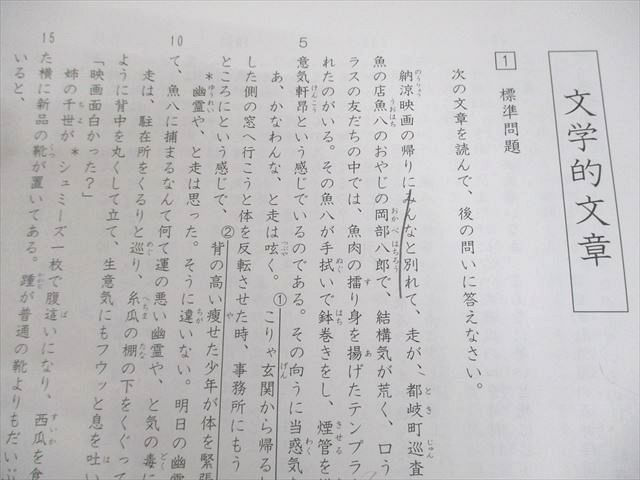 文学的文章
1 標準問題
次の文章を読んで、後の問いに答えなさい。
納涼映画の帰りにみんなと別れて、走が、都岐町巡査
魚の店魚八のおやじの岡部八郎で、結構気が荒く、口う
ラスの友だちの中では、魚肉の擂り身を揚げたテンプラ
れたのがいる。その魚八が手拭いで鉢巻きをし、煙管を
5
意気軒昂という感じでいるのである。その向うに当惑気
あ、かなわんな、と走は呟く。①こりゃ玄関から帰る
した側の窓へ行こうと体を反転させた時、事務所にもう
ところにという感じで、②背の高い痩せた少年が体を緊張
*幽霊や、と走は思った。そうに違いない。明日の幽霊
10
て、魚八に捕まるなんて何て運の悪い幽霊や、と気の毒に
走は、駐在所をくるりと巡り、糸瓜の棚の下をくぐっ
ように背中を丸くして立て、生意気にもフウッと息を吐い
「映画面白かった?」
姉の千世が*シュミーズ一枚で腹這いになり、西瓜を食
15
た横に新品の靴が置いてある。踵が普通の靴よりもだい
いると、